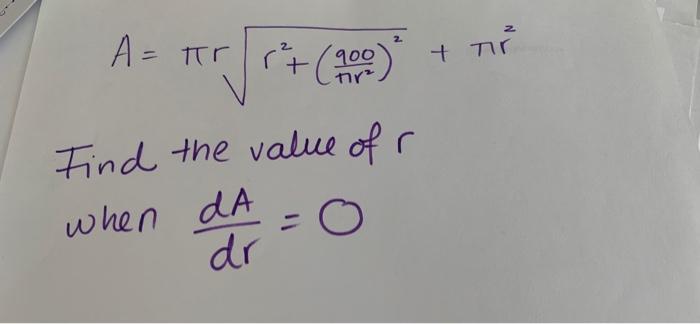 A = πr√(r² + (900/πr²)²) + πr²
Find the value of r
when dA/dr = 0